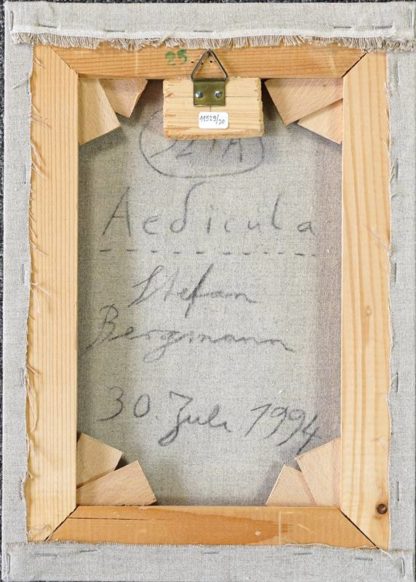 25.
11529/20
21A
Aedicula
Stefan
Bergmann
30. Juli 1994